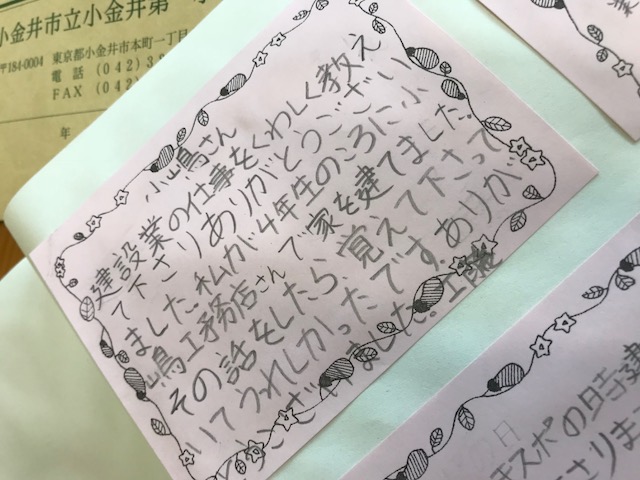 小金井市立小金井第
〒184-0004 東京都小金井市本町一丁目
電話(042)38
FAX(042)
年
小嶋さん
建設業の仕事をくわしく教え
て下さりありがとうござい
ました。私が4年生のころに、小
嶋工務店さんで家を建てました。
その話をしたら、覚えて下さって
いてうれしかったです。ありが
とうございました。工藤
キスポの時、建
さりま